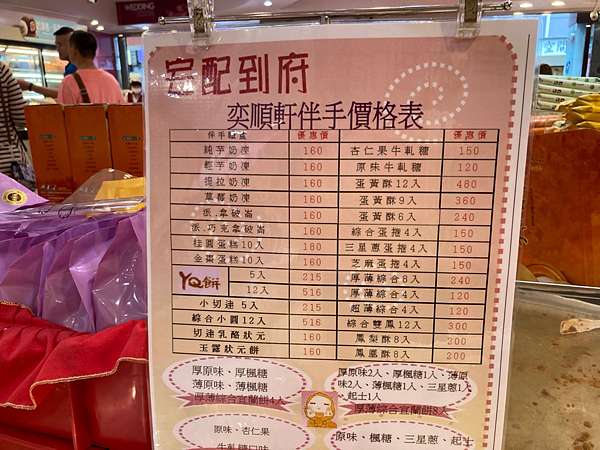 WEDDING
宅配到府
奕順軒伴手價格表
伴手禮盒 優惠價 優惠價
純芋奶凍 160 杏仁果牛軋糖 150
輕芋奶凍 160 原味牛軋糖 120
提拉奶凍 160 蛋黃酥12入 480
草莓奶凍 160 蛋黃酥9入 360
派.拿破崙 160 蛋黃酥6入 240
派.巧克拿破崙 160 綜合蛋捲4入 150
桂圓蛋糕10入 180 三星蔥蛋捲4入 150
金棗蛋糕10入 160 芝麻蛋捲4入 150
YQ餅 5入 215 厚薄綜合8入 240
12入 516 厚薄綜合4入 120
小切達 5入 215 超薄綜合4入 120
綜合小圓12入 516 綜合雙鳳12入 300
切達乳酪狀元 160 鳳梨酥8入 200
玉露狀元餅 160 鳳凰酥8入 200
厚原味、厚楓糖
薄原味、薄楓糖
厚薄綜合宜蘭餅4入
厚原味2入、厚楓糖1入、薄原
味2入、薄楓糖1入、三星蔥1入
、起士1入
厚薄綜合宜蘭餅8入
原味、杏仁果
牛軋糖口味
原味、楓糖、三星蔥、起士